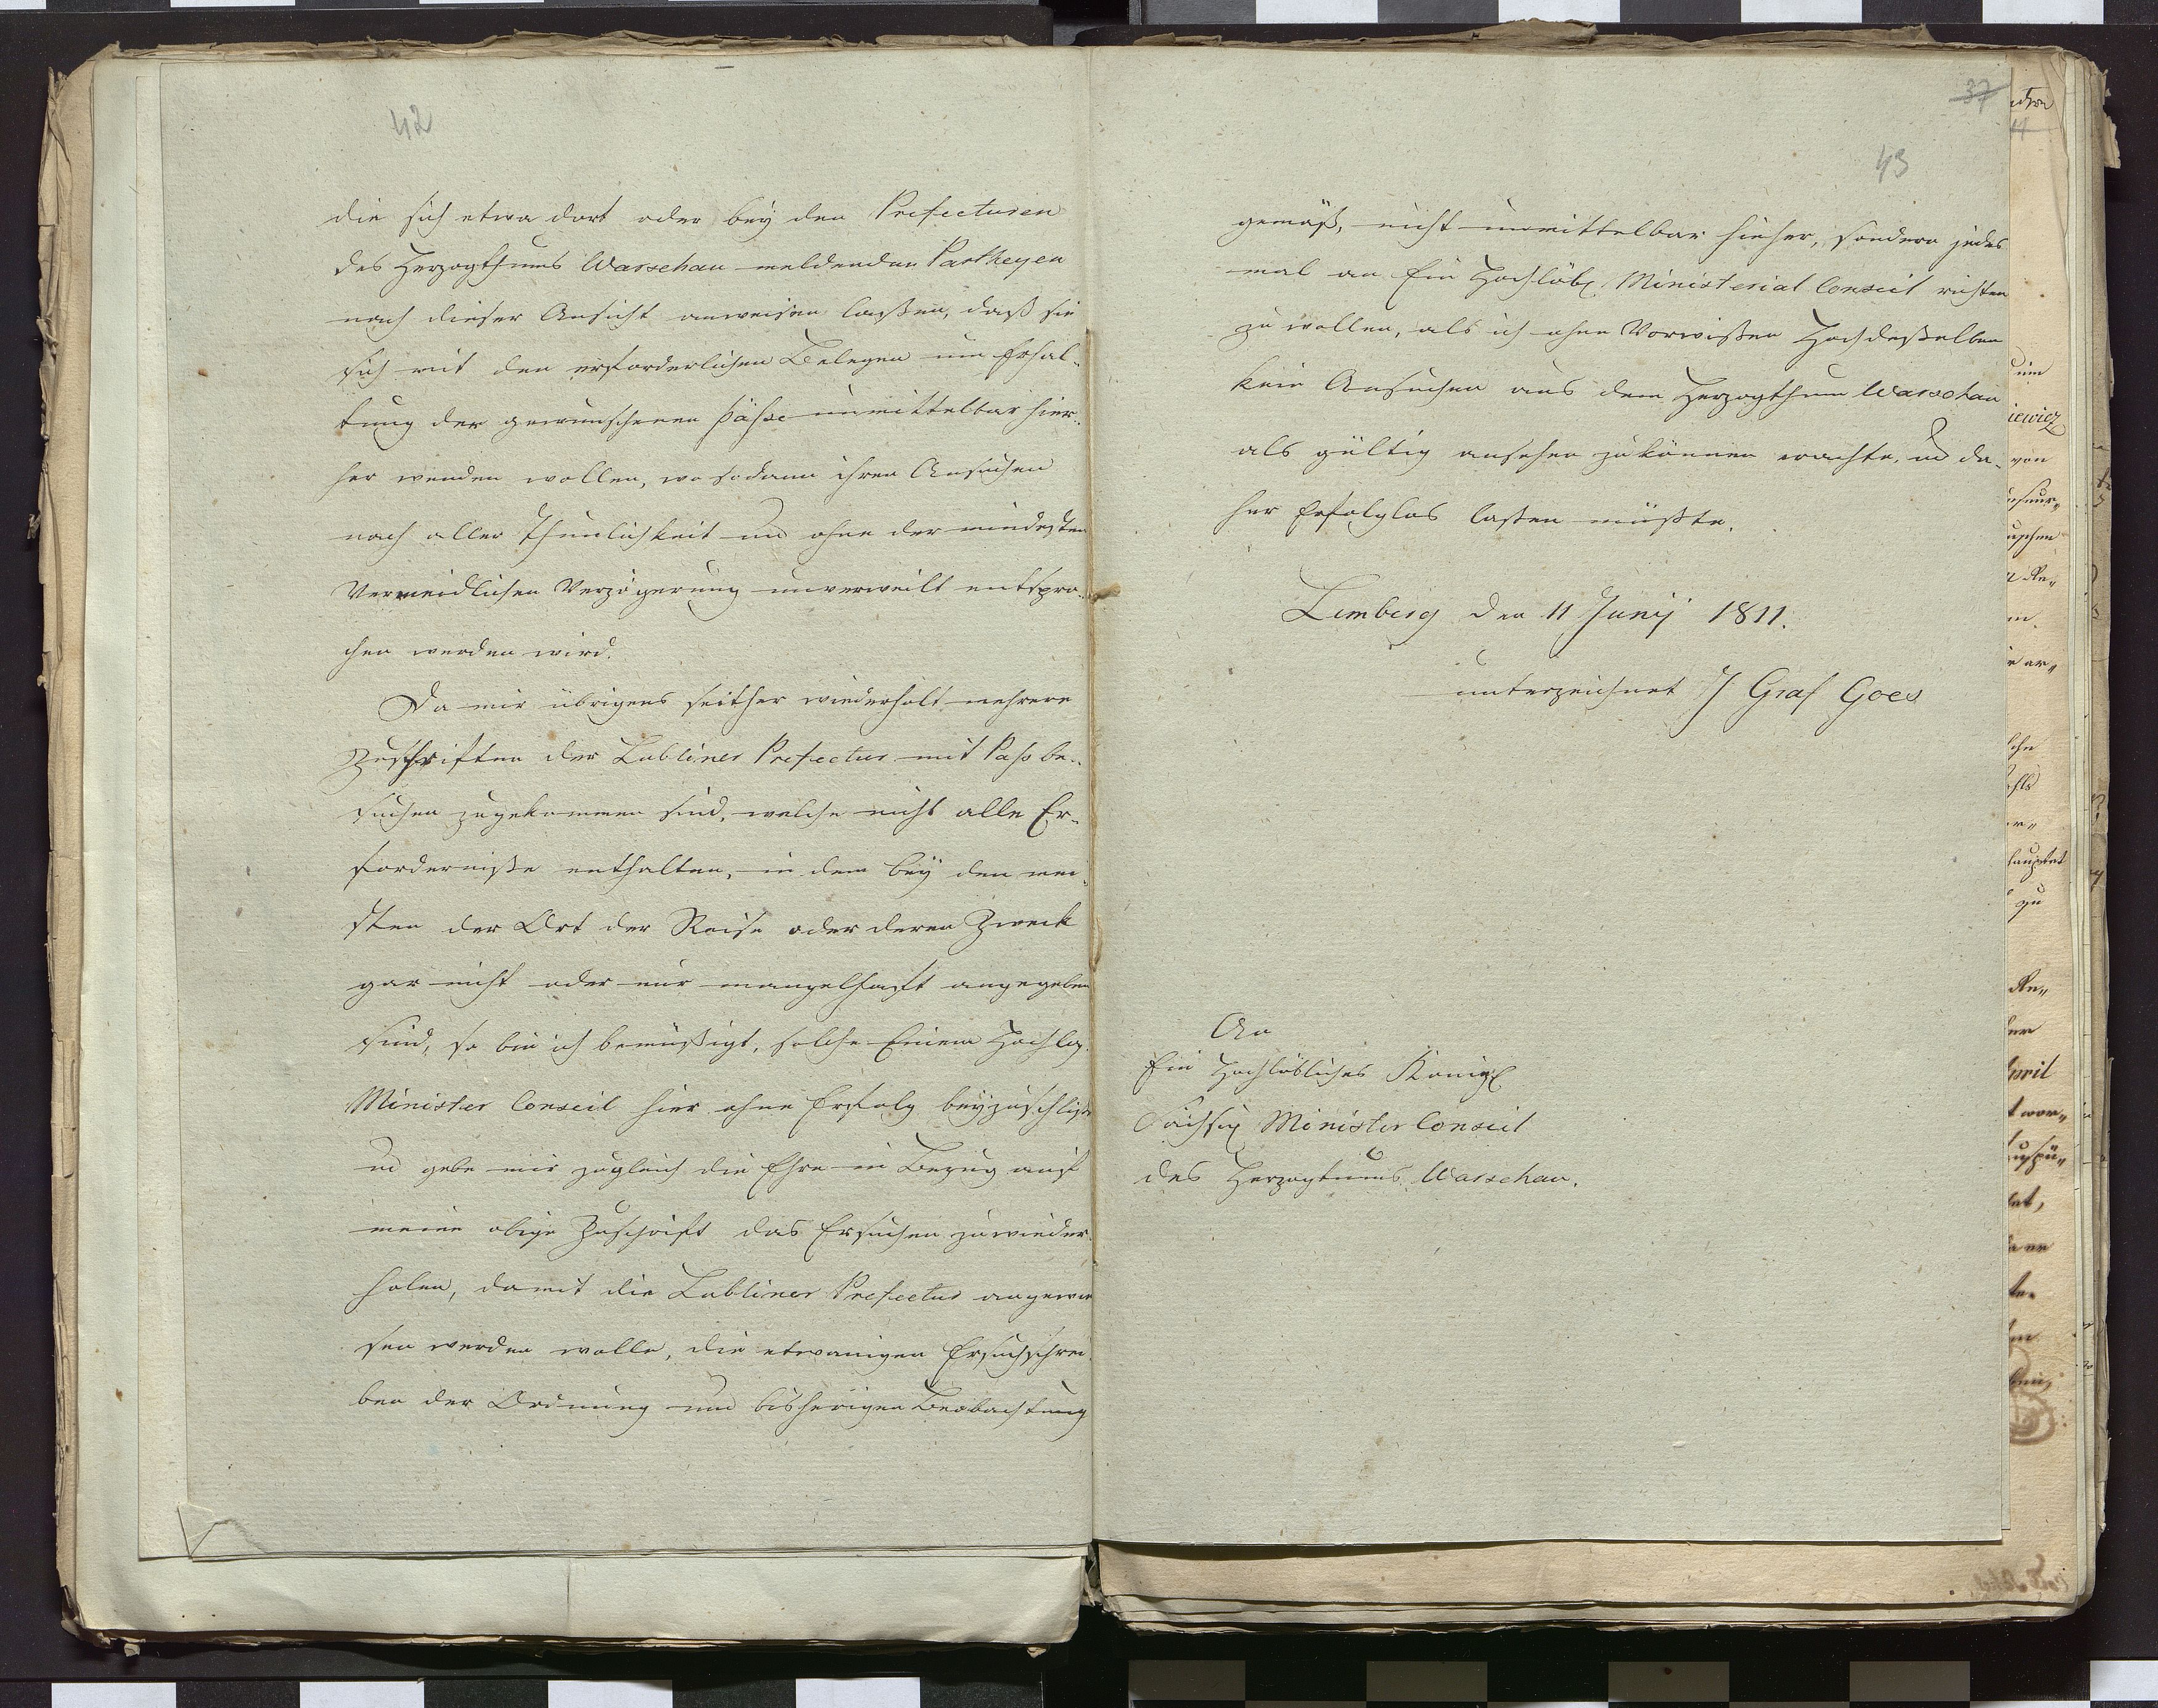 42
die sich etwa dort oder bey den Prefecturen
des Herzogthums Warschau meldenden Partheyen
nach dieser Ansicht anweisen laßen, daß sie
sich mit den erforderlichen Belegen um Erhal-
tung der gewunschenen Päße unmittelbar hier-
her wenden wollen, wo sodann ihren Ansuchen
nach aller Thunlichkeit und ohne der mindesten
Vermeidlichen Verzögerung unverweilt entspro-
chen werden wird.
Da mir übrigens seither wiederholt mehrere
Zuschriften der Lubliner Prefectur mit Paß be-
suchen zugekommen sind, welche nicht alle Er-
forderniße enthalten, in dem bey den mei-
sten der Ort der Reise oder deren Zweck
gar nicht oder nur mangelhaft angegeben
sind, so bin ich bemüßigt, solche Einem Hochlöb.
Minister Conseil hier ohne Erfolg beyzuschließen
und gebe mir zugleich die Ehre in Bezug auf
meine obige Zuschrift das Ersuchen zu wieder-
holen, damit die Lubliner Prefectur angewie
sen werden wolle, die etwanigen Ersuchschrei-
ben der Ordnung und bisherigen Beobachtung
37
43
gemäß, nicht unmittelbar hieher, sondern jedes
mal an Ein Hochlöbl. Ministerial Conseil richten
zu wollen, als ich ohne Vorwißen Hochdeßelben
kein Ansuchen aus dem Herzogthum Warschau
als gültig ansehen zu können erachte, und da-
her Erfolglos laßen müßte.
Lemberg den 11 Junij 1811.
unterzeichnet J Graf Goes
An
Ein Hochlöbliches Königl
Sächsis Minister Conseil
des Herzogtums Warschau.